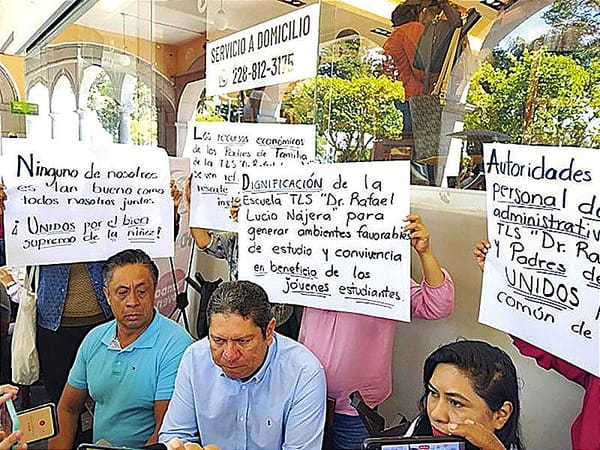 SERVICIO A DOMICILIO
228-812-3175
Ninguno de nosotros
es tan bueno como
todos nosotros juntos.
¡ UNIDOS por el bien
supremo de la niñez!
Los recursos económicos
de los Padres de Familia
de la TLS
se ven
DIGNIFICACIÓN de la
Escuela TLS "Dr. Rafael
Lucio Nájera" para
generar ambientes favorables
de estudio y convivencia
en beneficio de los
jóvenes estudiantes.
Autoridades
personal
administrativ
TLS "Dr. R
y Padres de
UNIDOS
común de